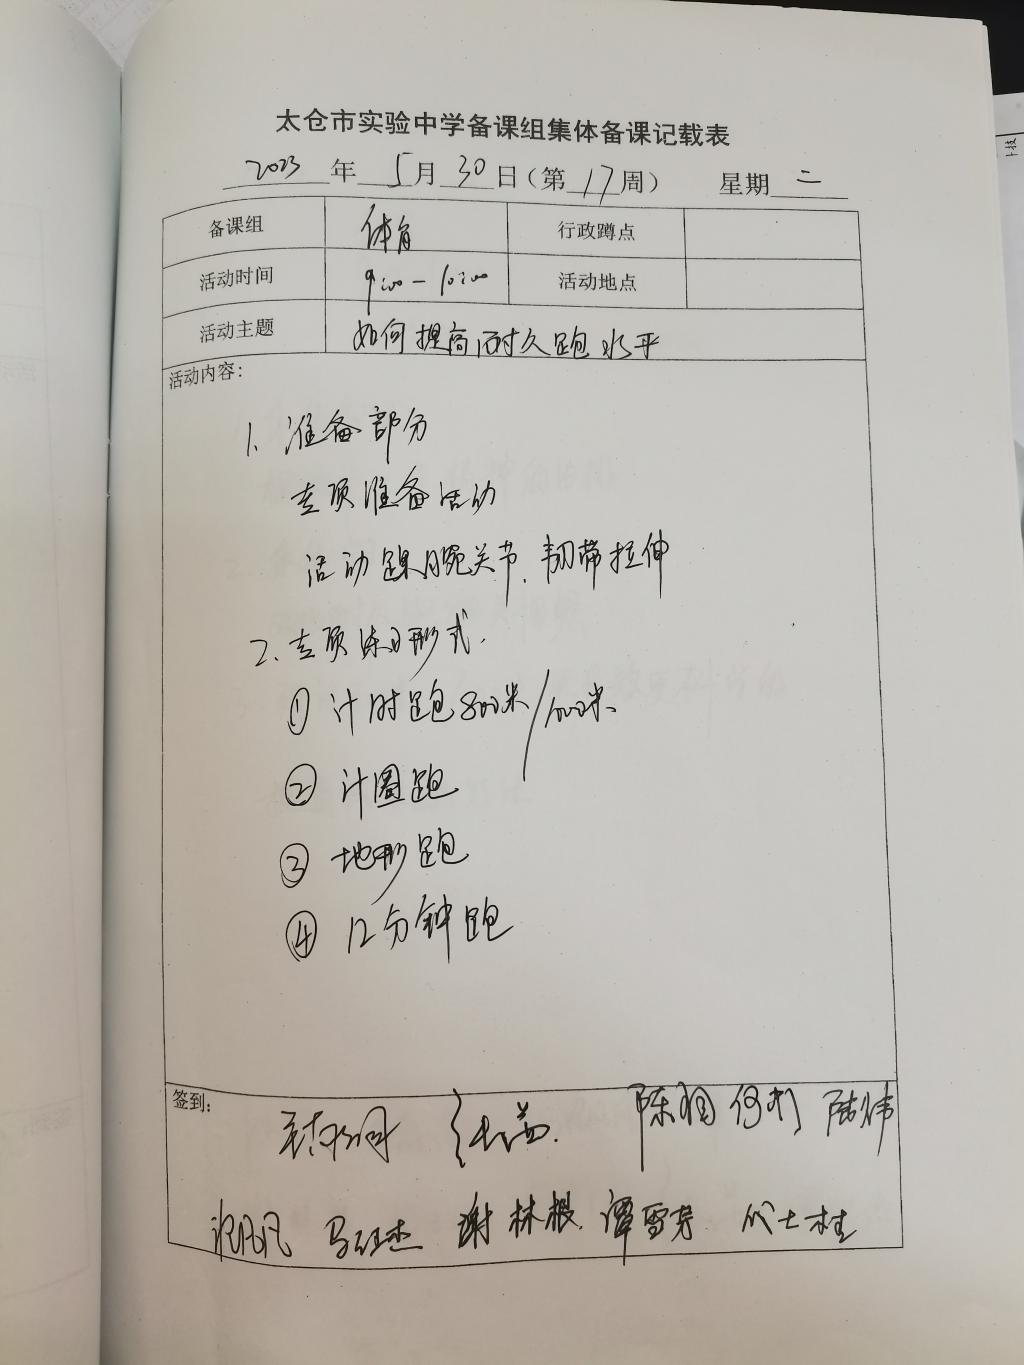 太仓市实验中学备课组集体备课记载表
2023年5月30日（第17周） 星期二
备课组 体育 行政蹲点
活动时间 9:00-10:00 活动地点
活动主题 如何提高耐久跑水平
活动内容:
1. 准备部分
专项准备活动
活动踝腕关节、韧带拉伸
2. 专项练习形式.
① 计时跑800米/1000米.
② 计圈跑
③ 地形跑
④ 12分钟跑
签到:
陈翔 陆伟
谢林根 谭雪芳